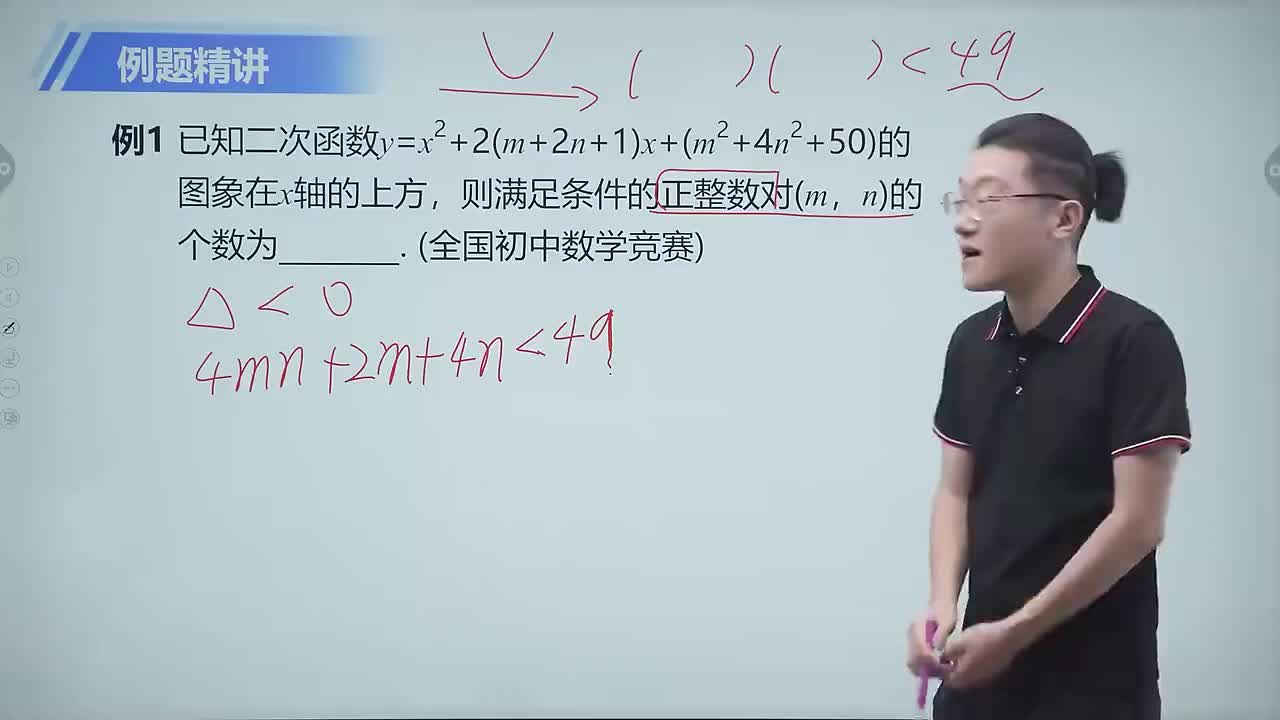 例题精讲
( )( ) < 49
例1 已知二次函数y=x²+2(m+2n+1)x+(m²+4n²+50)的
图象在x轴的上方，则满足条件的正整数对(m，n)的
个数为_______. (全国初中数学竞赛)
△ < 0
4mn+2m+4n<49